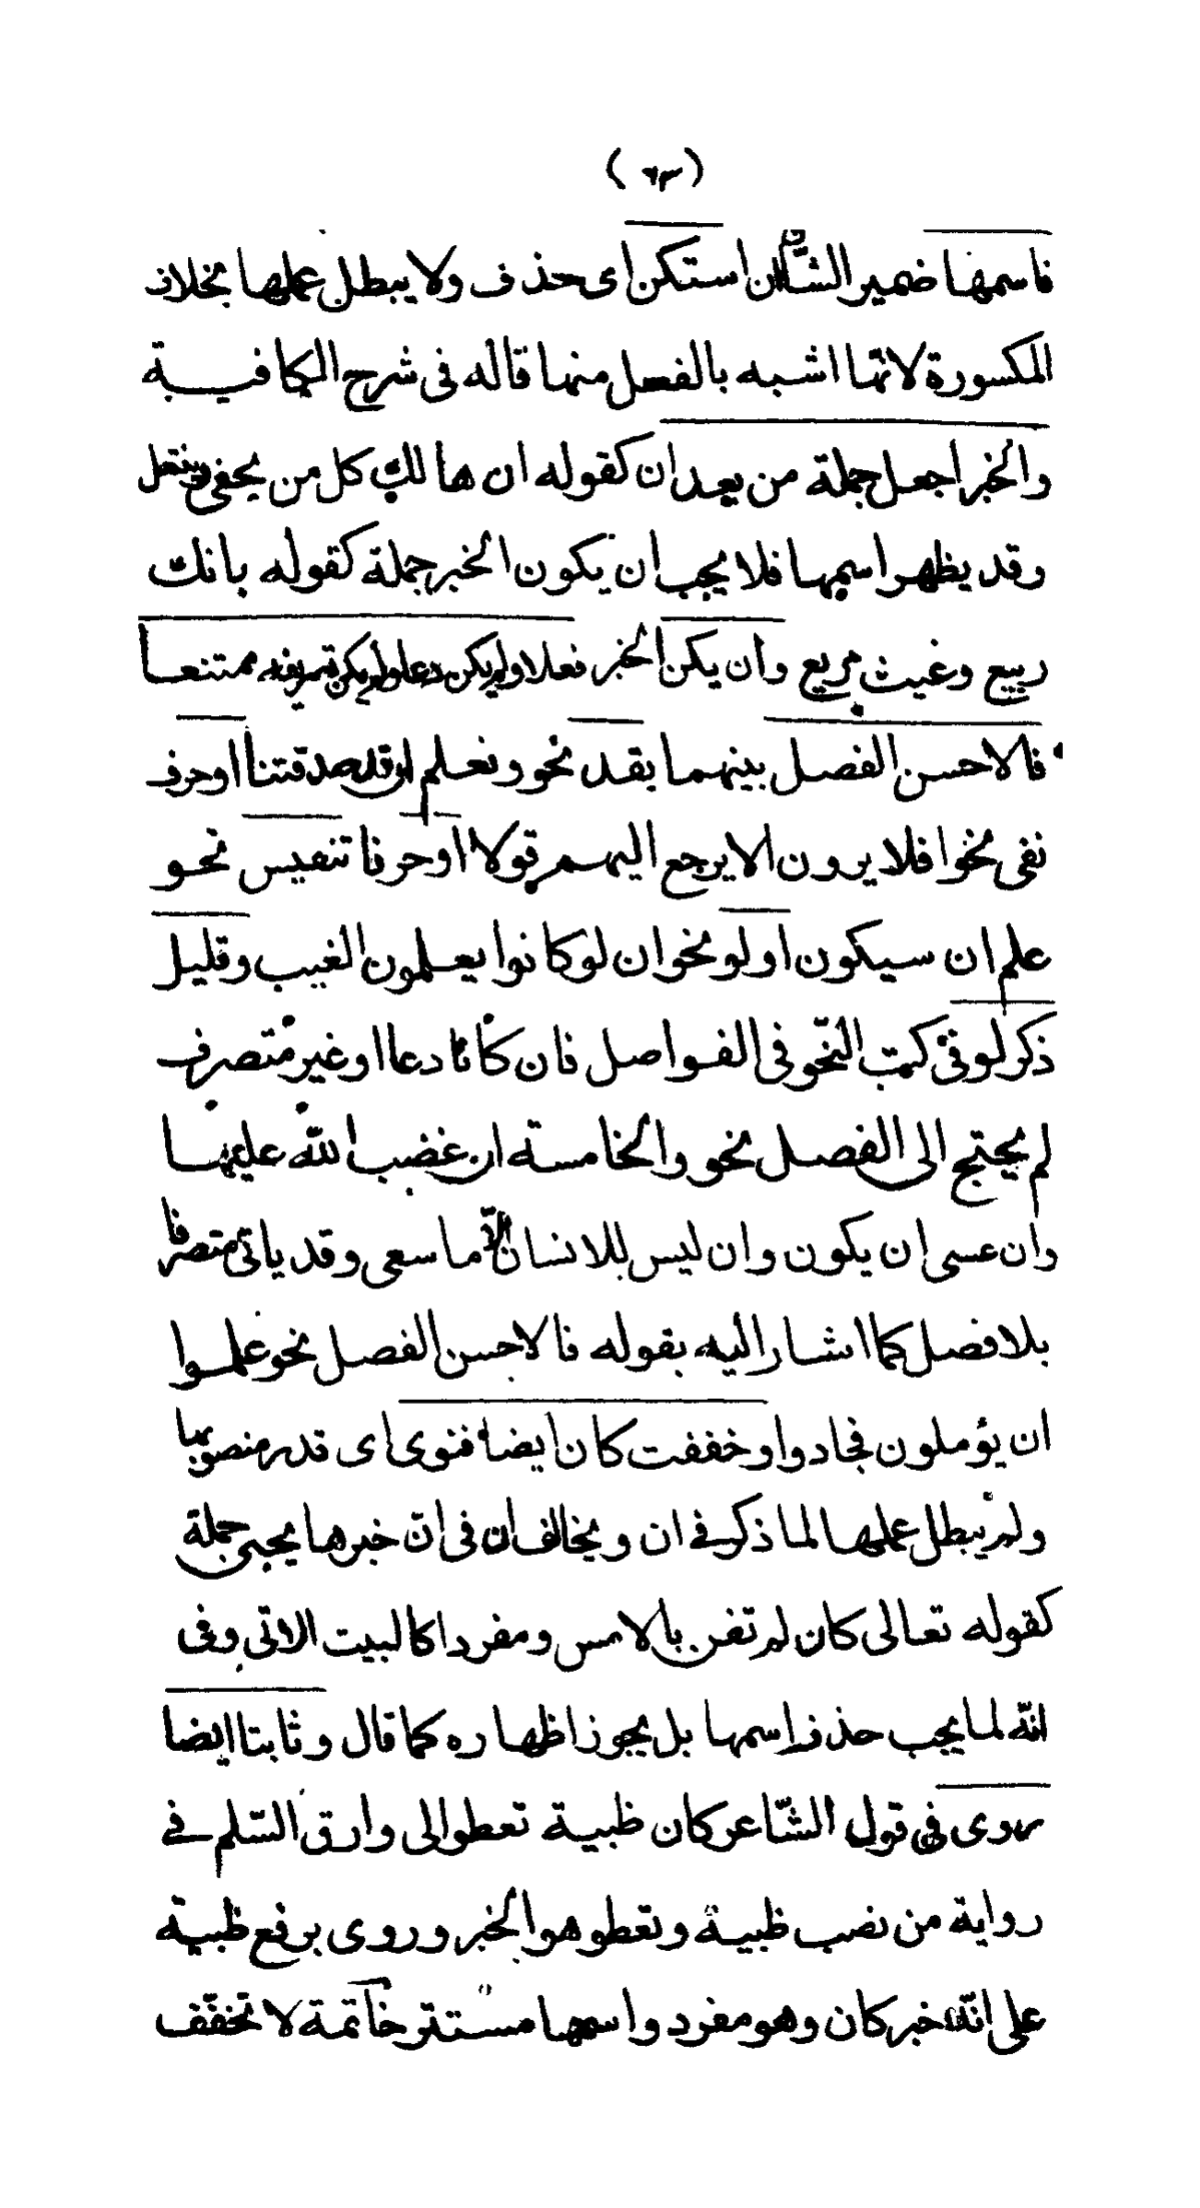 (٦٣)
فاسمها ضمير الشّان استكن اى حذف ولا يبطل عملها بخلاف
المكسورة لانّها اشبه بالفعل منها قاله فى شرح الكافيــة
والخبر اجعل جملة من بعد ان كقوله ان هالك كل من يحفى وينتعل
وقد يظهر اسمها فلا يجب ان يكون الخبر جملة كقوله بانك
ربيع وغيث مريع وان يكن الخبر فعلا ولم يكن دعا ولم يكن تصريفه ممتنعا
فالاحسن الفصل بينهما بقد نحو ونعلم ان قد صدقتنا اوحرف
نفى نحو افلا يرون الا يرجع اليهم قولا اوحرفا تنفيس نحو
علم ان سيكون اولو نحو ان لو كانوا يعلمون الغيب وقليل
ذكر لو فى كتب النّحو فى الفواصل فان كان دعا اوغير متصرف
لم يحتج الى الفصل نحو والخامسة ان غضب اللّه عليها
وان عسى ان يكون وان ليس للانسان الّا ما سعى وقد ياتى متصرفا
بلا فصل كما اشار اليه بقوله فالاحسن الفصل نحو علموا
ان يؤملون فجادوا وخففت كان ايضا فنوى اى قدر منصوبها
ولم يبطل عملها لما ذكر فى ان ويخالف ان فى انّ خبرها يجىء جملة
كقوله تعالى كان لم تغن بالامس ومفردا كالبيت الاتى وفى
انّه لما يجب حذف اسمها بل يجوز اظهاره كما قال وثابتا ايضا
روى فى قول الشّاعر كان ظبية تعطو الى وارق السّلم فى
رواية من نصب ظبية وتعطو هو الخبر وروى برفع ظبية
على انّه خبر كان وهو مفرد واسمها مستتر خاتمة لا تخفّف